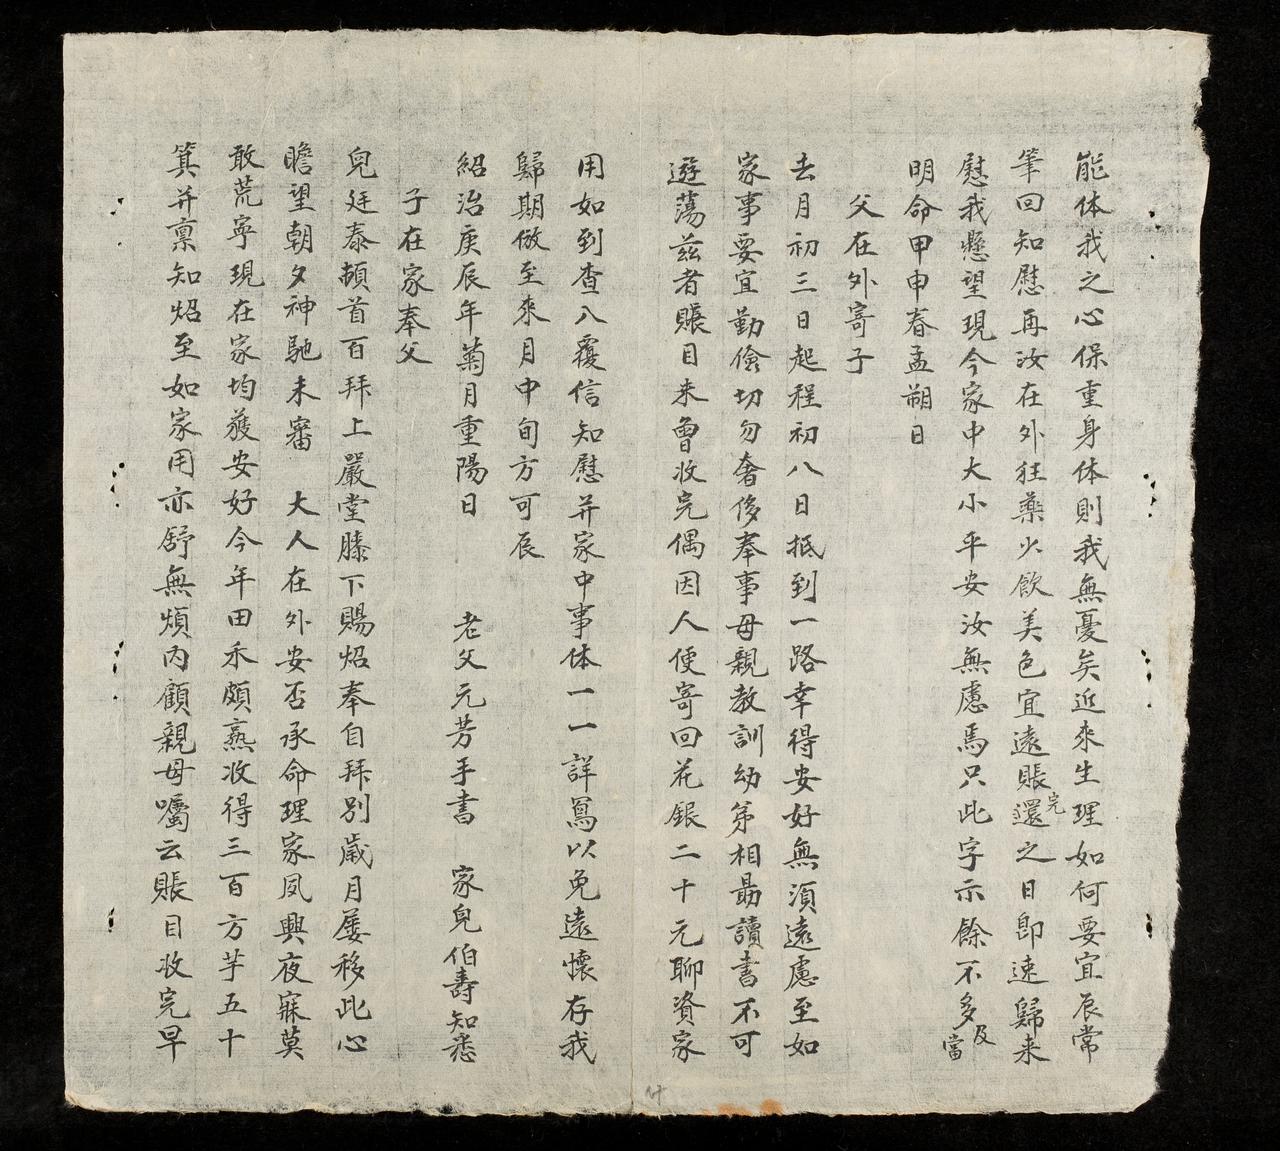 能体我之心保重身体則我無憂矣近來生理如何要宜辰常
筆回知慰再汝在外狂藥少飲美色宜遠賬還完之日即速歸来
慰我懸望現今家中大小平安汝無慮焉只此字示餘不多及當
明命甲申春孟朔日
父在外寄子
去月初三日起程初八日抵到一路幸得安好無須遠慮至如
家事要宜勤儉切勿奢侈奉事母親教訓幼弟相勗讀書不可
遊蕩茲者賬目未曾收完偶因人便寄回花銀二十元聊資家
用如到查入覆信知慰并家中事体一一詳寫以免遠懷存我
歸期倣至來月中旬方可辰
紹治庚辰年菊月重陽日 老父元芳手書 家兒伯壽知悉
子在家奉父
兒廷泰頓首百拜上嚴堂膝下賜炤奉自拜別歲月屢移此心
瞻望朝夕神馳未審 大人在外安否承命理家夙興夜寐莫
敢荒寧現在家均蒦安好今年田禾頗熟收得三百方芋五十
箕并禀知炤至如家用亦舒無煩內顧親母囑云賬目收完早